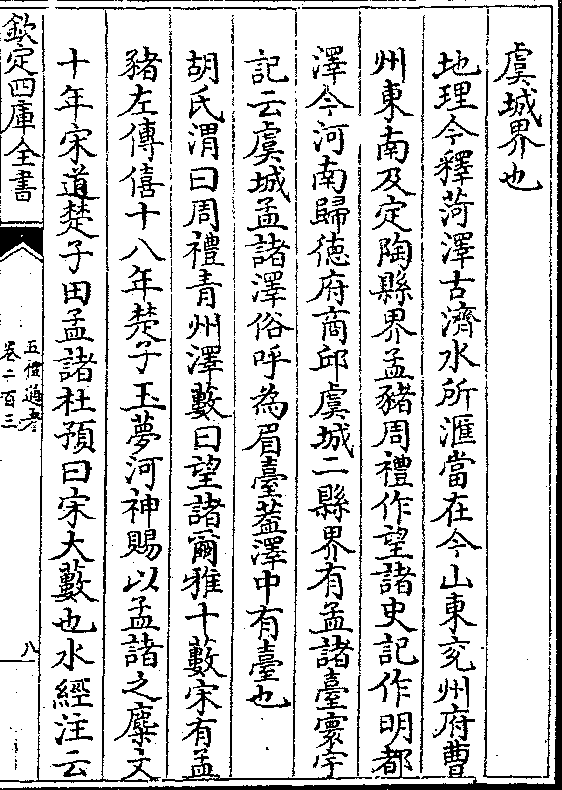 虞城界也
地理今釋菏澤古濟水所滙當在今山東兖州府曹
州東南及定陶縣界孟豬周禮作望諸史記作明都
澤今河南歸徳府商邱虞城二縣界有孟諸臺寰宇
記云虞城孟諸澤俗呼為眉臺葢澤中有臺也
胡氏渭曰周禮青州澤藪曰望諸爾雅十藪宋有孟
豬左傳僖十八年楚子玉夢河神賜以孟諸之麋文
十年宋道楚子田孟諸杜預曰宋大藪也水經注云
欽定四庫全書
五禮通考
卷二百三
八